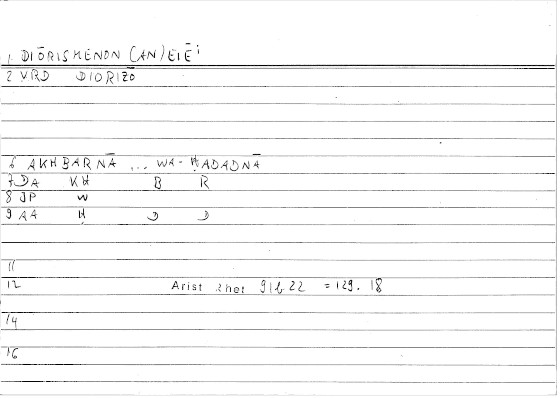 1 DIŌRISMENON (AN) EIĒ
2 VRD DIORIZŌ
6 AKHBARNĀ ... WA-ḤADADNĀ
7 DA KH B R
8 JP W
9 AA Ḥ D D
11
12 Arist Rhet 91b22 = 129.18
14
16